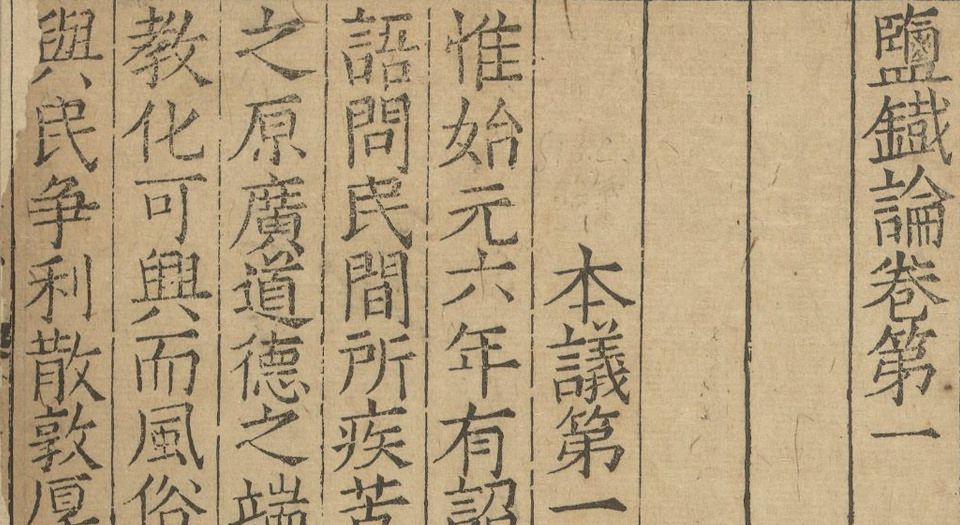 鹽鐵論卷第一
本議第一
惟始元六年有詔
語問民間所疾苦
之原廣道德之端
教化可興而風俗
與民爭利散敦厚